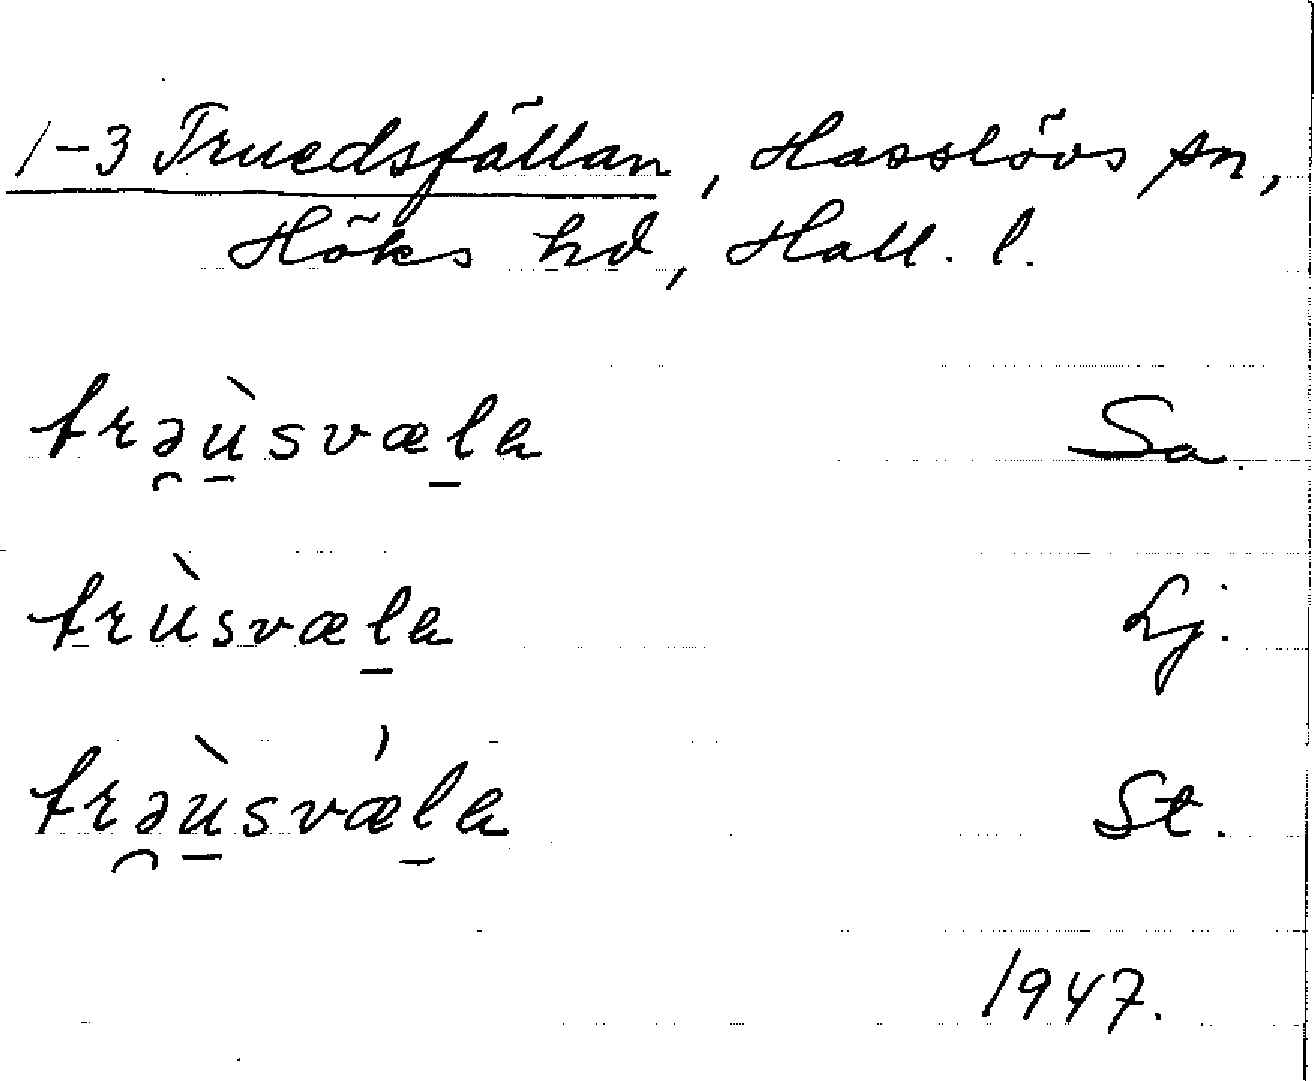 1-3 Truedsfällan, Hasslövs sn,
Höks hd, Hall. l.
trə̯ṳ̀svæl̠a Sa.
trùsvæl̠a Lj.
trə̯ù̠svæ̍l̠a St.
1947.